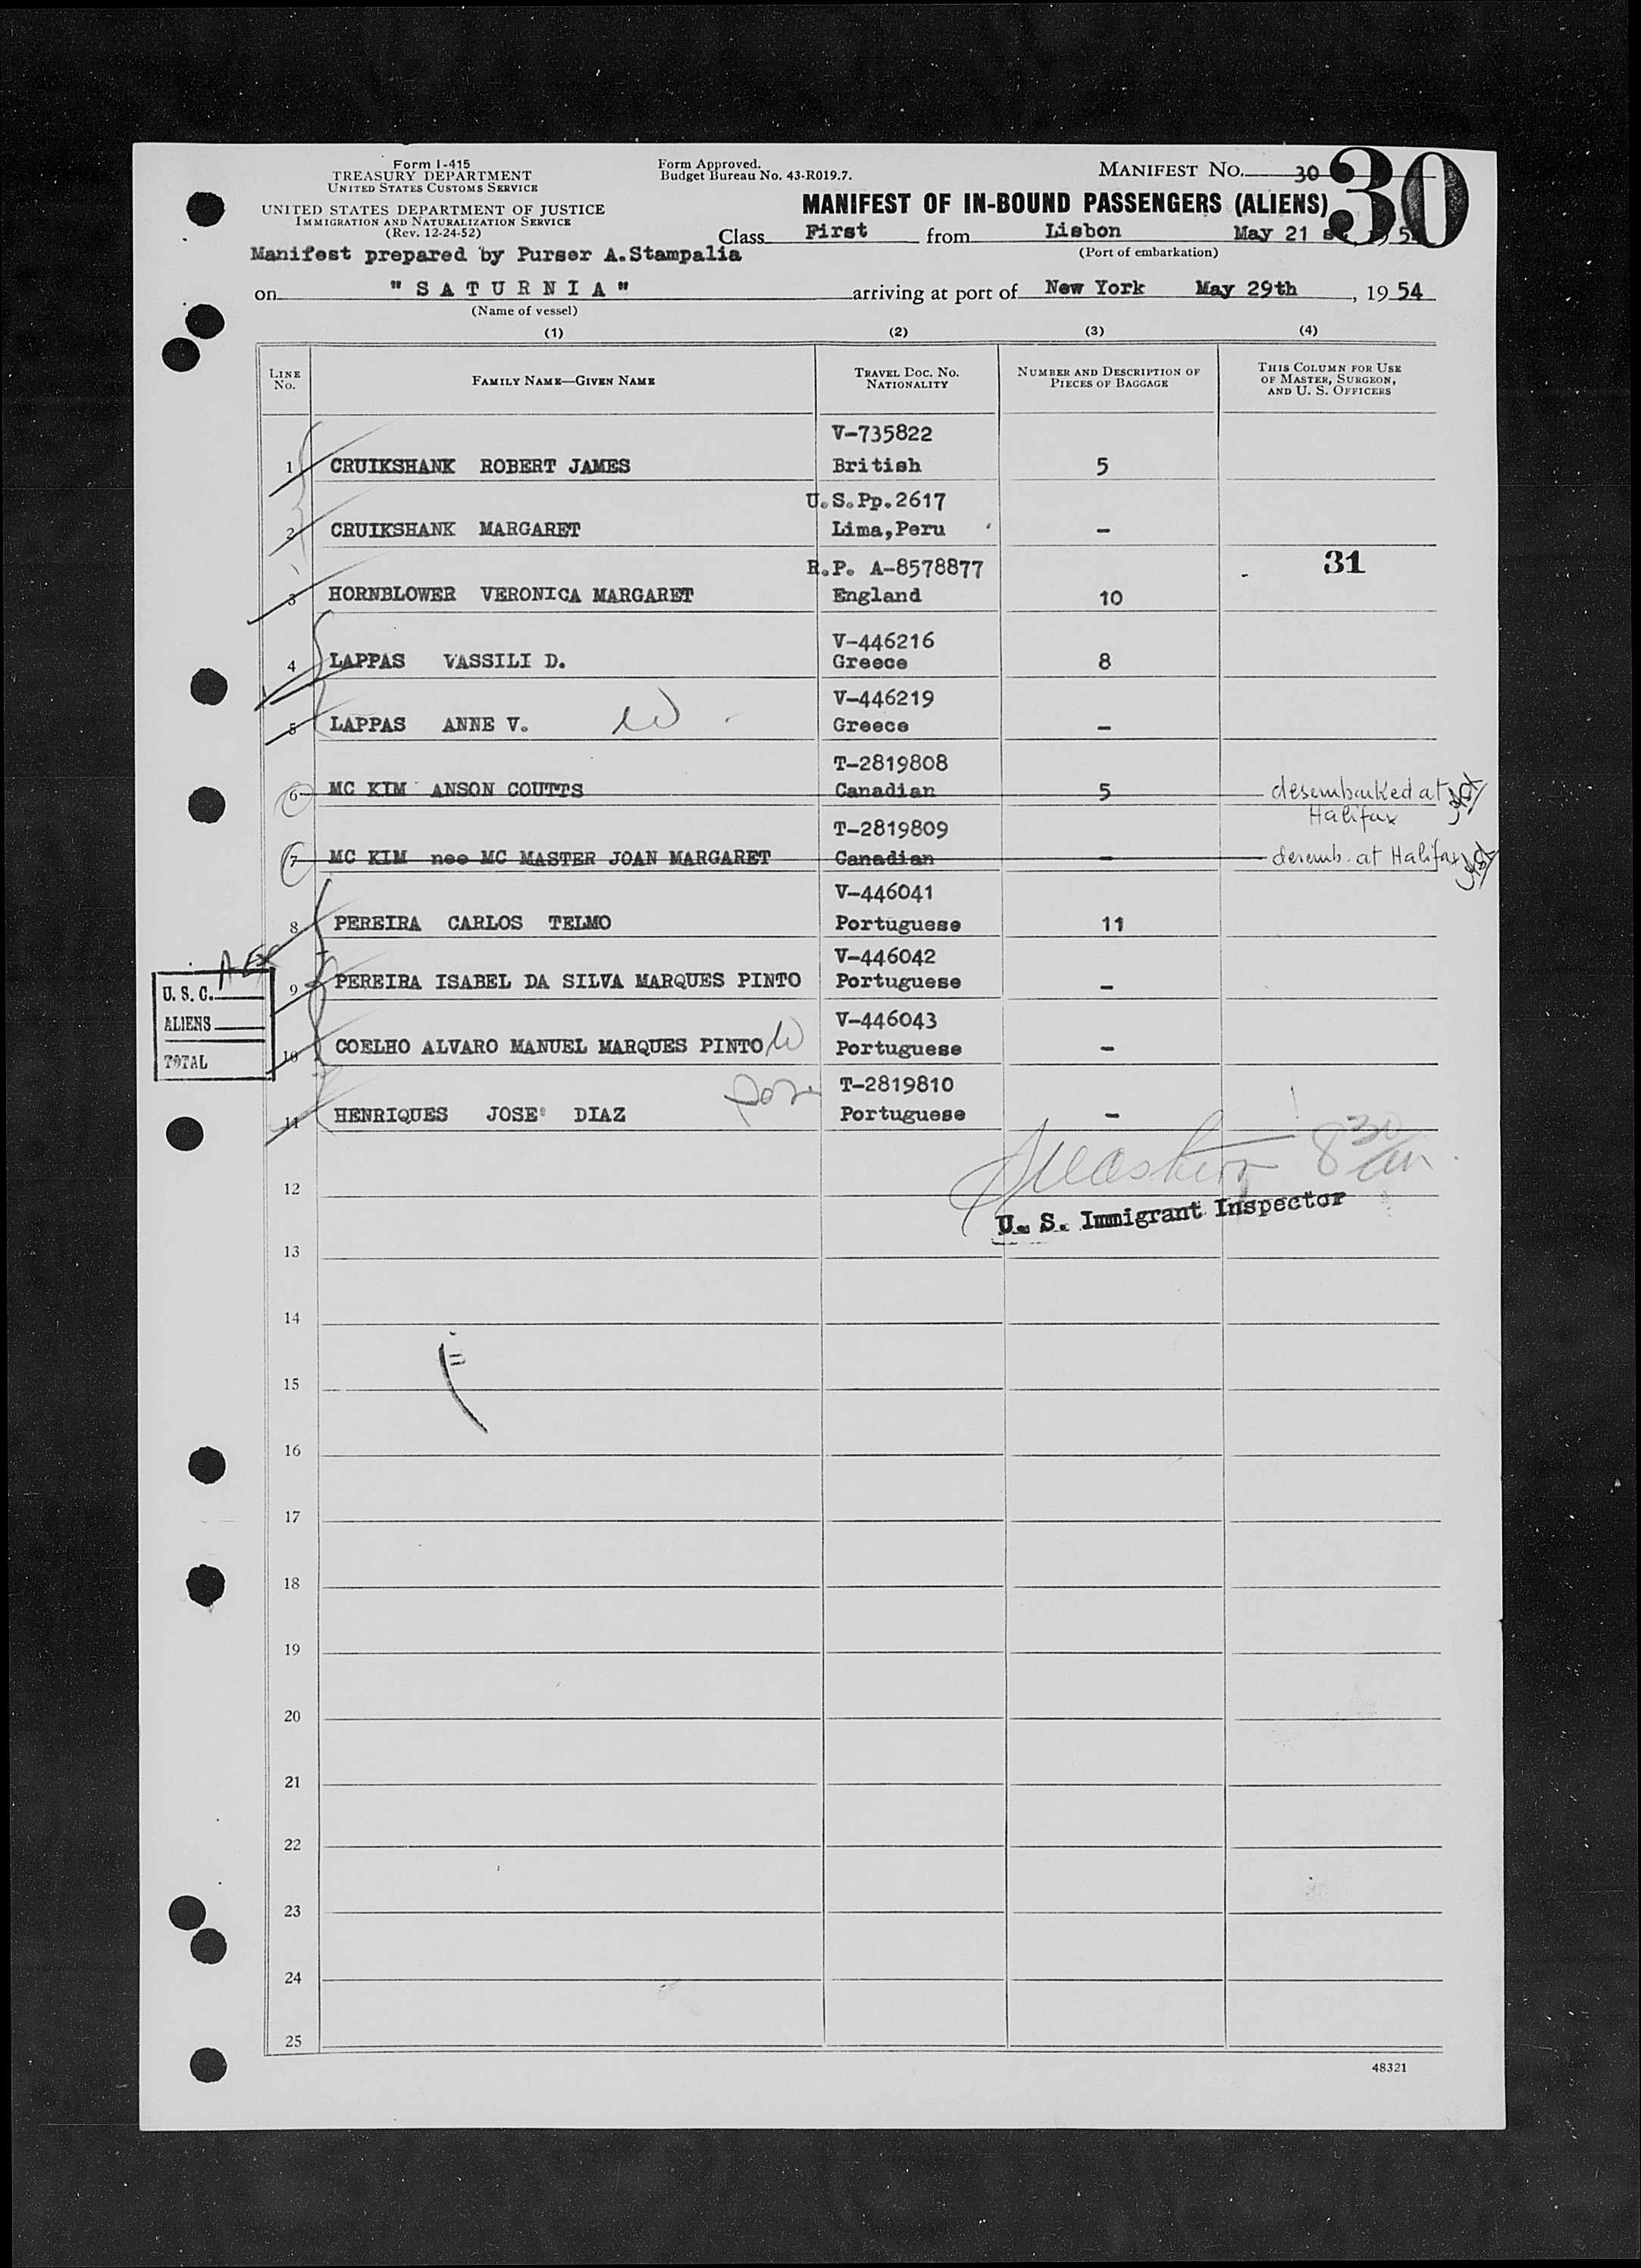 Form I-415
TREASURY DEPARTMENT
UNITED STATES CUSTOMS SERVICE
UNITED STATES DEPARTMENT OF JUSTICE
IMMIGRATION AND NATURALIZATION SERVICE
(Rev. 12-24-52)
Form Approved.
Budget Bureau No. 43-R019.7.
MANIFEST NO. 30
30
MANIFEST OF IN-BOUND PASSENGERS (ALIENS)
Class First from Lisbon May 21 st, 195
(Port of embarkation)
Manifest prepared by Purser A.Stampalia
on "SATURNIA" arriving at port of New York May 29th, 1954
(Name of vessel)
(1) (2) (3) (4)
LINE No. FAMILY NAME—GIVEN NAME TRAVEL DOC. NO. NATIONALITY NUMBER AND DESCRIPTION OF PIECES OF BAGGAGE THIS COLUMN FOR USE OF MASTER, SURGEON, AND U. S. OFFICERS
V-735822
1 CRUIKSHANK ROBERT JAMES British 5
U.S.Pp.2617
2 CRUIKSHANK MARGARET Lima,Peru –
31
R.P. A-8578877
3 HORNBLOWER VERONICA MARGARET England 10
V-446216
4 LAPPAS VASSILI D. Greece 8
V-446219
5 LAPPAS ANNE V. W Greece –
T-2819808
6 MC KIM ANSON COUTTS Canadian 5 desembarked at
Halifax
T-2819809
7 MC KIM nee MC MASTER JOAN MARGARET Canadian – desemb. at Halifax
V-446041
8 PEREIRA CARLOS TELMO Portuguese 11
V-446042
9 PEREIRA ISABEL DA SILVA MARQUES PINTO Portuguese –
V-446043
10 COELHO ALVARO MANUEL MARQUES PINTO W Portuguese –
T-2819810
11 HENRIQUES JOSE' DIAZ Portuguese –
U. S. C.
ALIENS
TOTAL
8 30 am
12
U. S. Immigrant Inspector
13
14
15
16
17
18
19
20
21
22
23
24
25
48321